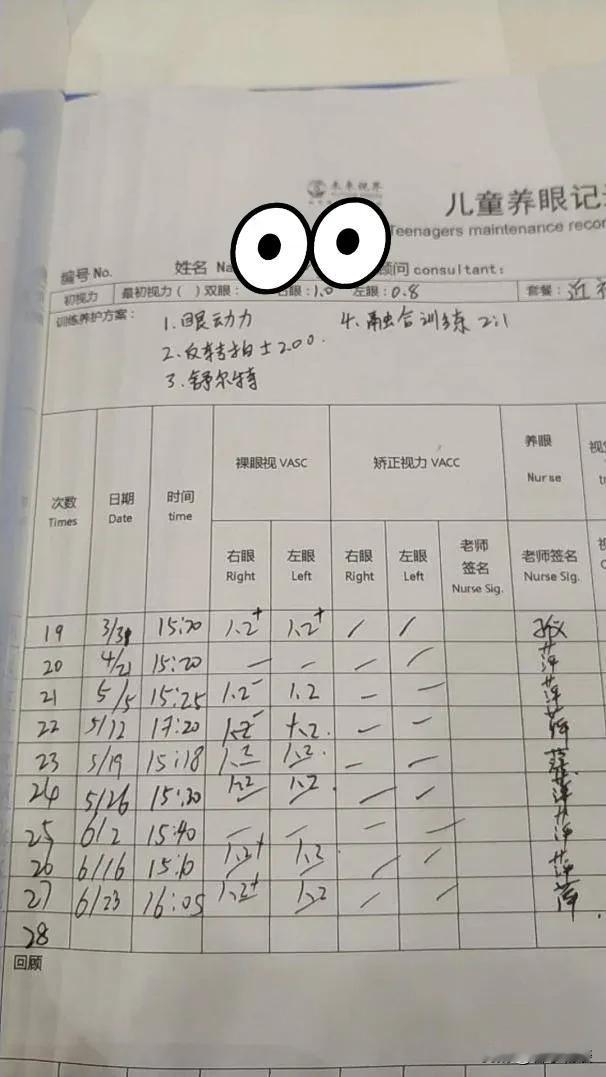 未来视界
儿童养眼记
Teenagers maintenance recor
编号No. 姓名 Na 顾问 consultant:
初视力 最初视力( )双眼: 右眼:1.0 左眼:0.8 套餐:近
训练养护方案: 1.眼动力 4.融合训练 2:1
2.反转拍±200.
3.舒尔特
次数 Times 日期 Date 时间 time 裸眼视 VASC 矫正视力 VACC 养眼 Nurse
右眼 Right 左眼 Left 右眼 Right 左眼 Left 老师签名 Nurse Sig. 老师签名 Nurse Sig.
19 3/31 15:20 1.2+ 1.2+ / /
20 4/21 15:20 — — — /
21 5/5 15:25 1.2- 1.2 — —
22 5/12 17:20 1.2- 1.2. — —
23 5/19 15:18 1.2 1.2. — —
24 5/26 15:30 1.2 1.2 / /
25 6/2 15:40 — — — —
26 6/16 15:10 1.2+ 1.2 / /
27 6/23 16:05 1.2+ 1.2 / /
28
回顾